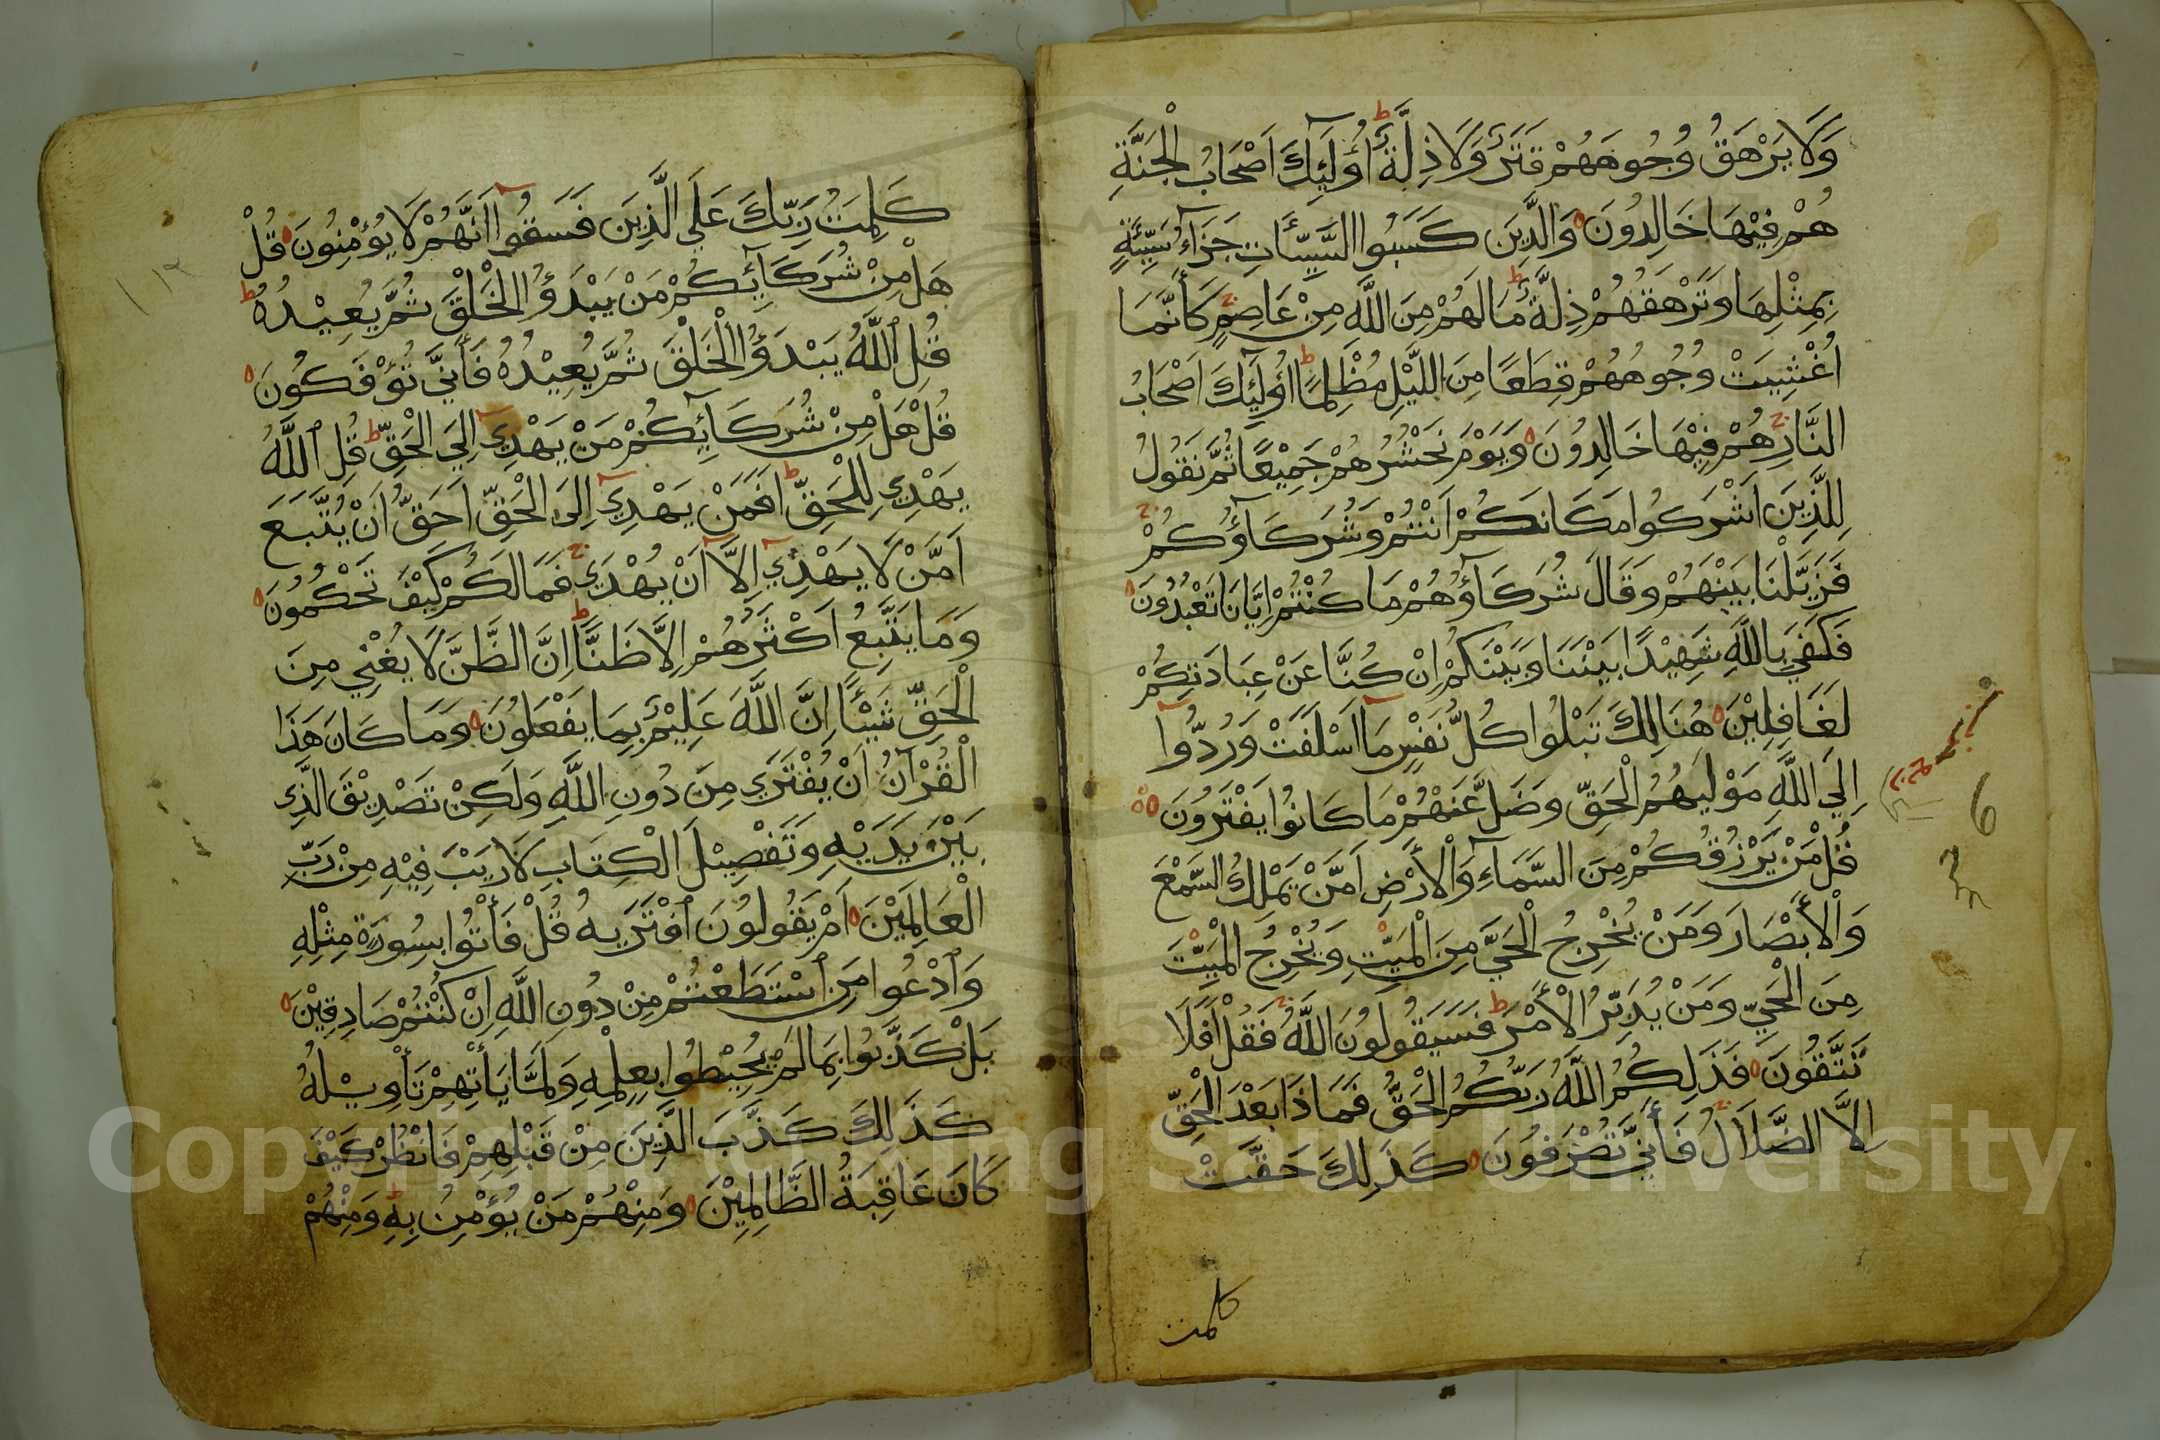 وَلَا يَرْهَقُ وُجُوهَهُمْ قَتَرٌ وَلَا ذِلَّةٌ ط أُولَٰئِكَ اَصْحَابُ الْجَنَّةِ
هُمْ فِيْهَا خَالِدُونَ ه وَالَّذِيَن كَسَبُوا السَّيِّئَاتِ جَزَآءُ سَيِّئَةٍ
بِمِثْلِهَا وَتَرْهَقُهُمْ ذِلَّةٌ ط مَا لَهُمْ مِنَ اللَّهِ مِنْ عَاصِمٍ ج كَأَنَّمَا
اُغْشِيَتْ وُجُوهُهُمْ قِطَعًا مِنَ اللَّيْلِ مُظْلِمًا ط اُولَٰئِكَ اَصْحَابُ
النَّارِ ج هُمْ فِيْهَا خَالِدُونَ ه وَيَوْمَ نَحْشُرُهُمْ جَمِيْعًا ثُمَّ نَقُولُ
لِلَّذِيَن اَشْرَكُوا مَكَانَكُمْ اَنْتُمْ وَشُرَكَآؤُكُمْ ج
فَزَيَّلْنَا بَيْنَهُمْ وَقَالَ شُرَكَآؤُهُمْ مَا كُنْتُمْ اِيَّانَا تَعْبُدُونَ ه
فَكَفَى بِاللَّهِ شَهِيْدًا بَيْنَنَا وَبَيْنَكُمْ اِنْ كُنَّا عَنْ عِبَادَتِكُمْ
لَغَافِلِيْنَ ه هُنَالِكَ تَبْلُوا كُلُّ نَفْسٍ مَا اَسْلَفَتْ وَرُدُّوا
اِلَى اللَّهِ مَوْلَيهُمُ الْحَقِّ وَضَلَّ عَنْهُمْ مَا كَانُوا يَفْتَرُونَ ه
قُلْ مَنْ يَرْزُقُكُمْ مِنَ السَّمَآءِ وَالْأَرْضِ اَمَّنْ يَمْلِكُ السَّمْعَ
وَالْأَبْصَارَ وَمَنْ يُخْرِجُ الْحَيَّ مِنَ الْمَيِّتِ وَيُخْرِجُ الْمَيِّتَ
مِنَ الْحَيِّ وَمَنْ يُدَبِّرُ الْأَمْرَ ط فَسَيَقُولُونَ اللَّهُ ج فَقُلْ اَفَلَا
تَتَّقُونَ ه فَذَلِكُمُ اللَّهُ رَبُّكُمُ الْحَقُّ فَمَاذَا بَعْدَ الْحَقِّ
اِلَّا الضَّلَالُ ج فَأَنَّى تُصْرَفُونَ ه كَذَلِكَ حَقَّتْ
كلمت
كَلِمَتُ رَبِّكَ عَلَى الَّذِيَن فَسَقُوا اَنَّهُمْ لَا يُؤْمِنُونَ ه قُلْ
هَلْ مِنْ شُرَكَآئِكُمْ مَنْ يَبْدَؤُ الْخَلْقَ ثُمَّ يُعِيْدُهُ ط
قُلِ اللَّهُ يَبْدَؤُ الْخَلْقَ ثُمَّ يُعِيْدُهُ فَأَنَّى تُؤْفَكُونَ ه
قُلْ هَلْ مِنْ شُرَكَآئِكُمْ مَنْ يَهْدِي اِلَى الْحَقِّ ط قُلِ اللَّهُ
يَهْدِي لِلْحَقِّ ط اَفَمَنْ يَهْدِي اِلَى الْحَقِّ اَحَقُّ اَنْ يُتَّبَعَ
اَمَّنْ لَا يَهْدِي اِلَّا اَنْ يُهْدَى ج فَمَا لَكُمْ كَيْفَ تَحْكُمُونَ ه
وَمَا يَتَّبِعُ اَكْثَرُهُمْ اِلَّا ظَنًّا ط اِنَّ الظَّنَّ لَا يُغْنِي مِنَ
الْحَقِّ شَيْئًا اِنَّ اللَّهَ عَلِيْمٌ بِمَا يَفْعَلُونَ ه وَمَا كَانَ هَذَا
الْقُرْآنُ اَنْ يُفْتَرَى مِنْ دُونِ اللَّهِ وَلَكِنْ تَصْدِيْقَ الَّذِي
بَيْنَ يَدَيْهِ وَتَفْصِيْلَ الْكِتَابِ لَا رَيْبَ فِيْهِ مِنْ رَبِّ
الْعَالَمِيْنَ ه اَمْ يَقُولُونَ افْتَرَيهُ قُلْ فَأْتُوا بِسُورَةٍ مِثْلِهِ
وَادْعُوا مَنِ اسْتَطَعْتُمْ مِنْ دُونِ اللَّهِ اِنْ كُنْتُمْ صَادِقِيْنَ ه
بَلْ كَذَّبُوا بِمَا لَمْ يُحِيْطُوا بِعِلْمِهِ وَلَمَّا يَأْتِهِمْ تَأْوِيْلُهُ
كَذَلِكَ كَذَّبَ الَّذِيَن مِنْ قَبْلِهِمْ فَانْظُرْ كَيْفَ
كَانَ عَاقِبَةُ الظَّالِمِيْنَ ه وَمِنْهُمْ مَنْ يُؤْمِنُ بِهِ وَمِنْهُمْ
١١٢
Copyright © King Saud University